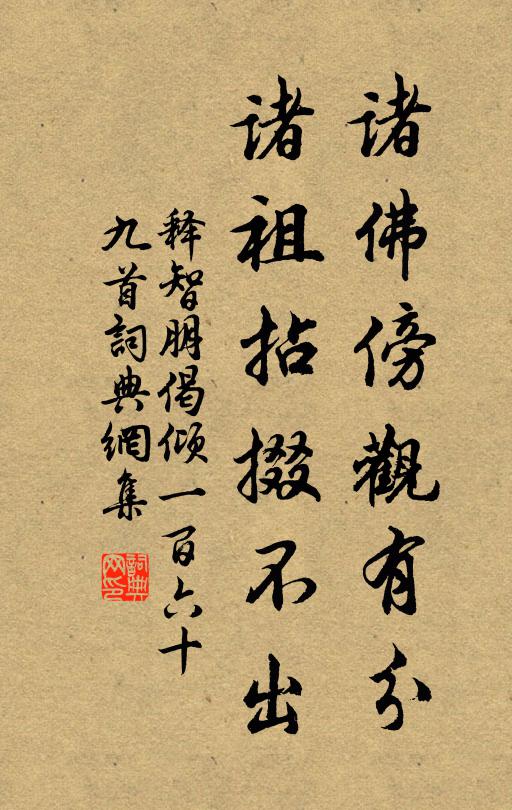 诸佛傍觀有分
诸祖拈掇不出
释智朋偈倾一百六十
九首詞典網集
詞典
网印